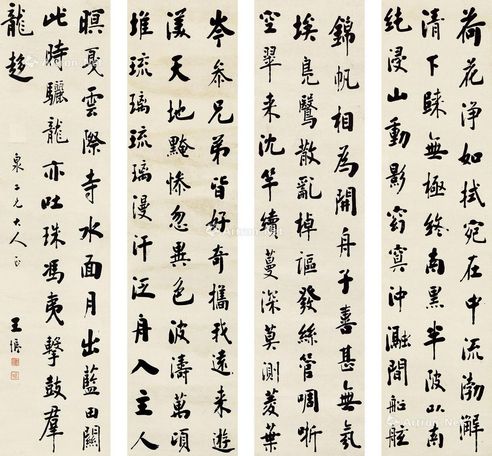 荷花淨如拭宛在中流渤澥
清下歸無極終南黑半陂以南
純浸山動影窈窕沖瀜間船舷
錦帆相為開舟子喜甚無氛
埃鳧鷖散亂棹謳發絲管啁哳
空翠來沈竿續蔓深莫測菱葉
岑參兄弟皆好奇攜我遠來遊
渼天地黤慘忽異色波濤萬頃
堆琉璃琉璃漫汗泛舟入主人
暝戛雲際寺水面月出藍田關
此時驪龍亦吐珠馮夷擊鼓群
龍趨
泉二兄大人正
王